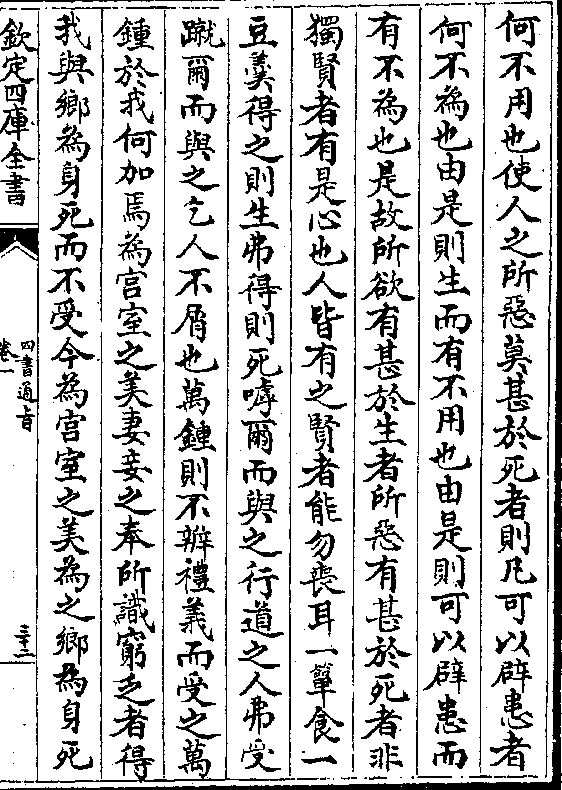 何不用也使人之所惡莫甚於死者則凡可以辟患者
何不為也由是則生而有不用也由是則可以辟患而
有不為也是故所欲有甚於生者所惡有甚於死者非
獨賢者有是心也人皆有之賢者能勿喪耳一簞食一
豆羮得之則生弗得則死嘑爾而與之行道之人弗受
蹴爾而與之乞人不屑也萬鍾則不辨禮義而受之萬
鍾於我何加焉為宫室之美妻妾之奉所識窮乏者得
我與鄉為身死而不受今為宫室之美為之鄉為身死
欽定四庫全書
四書通旨
卷一
三十二